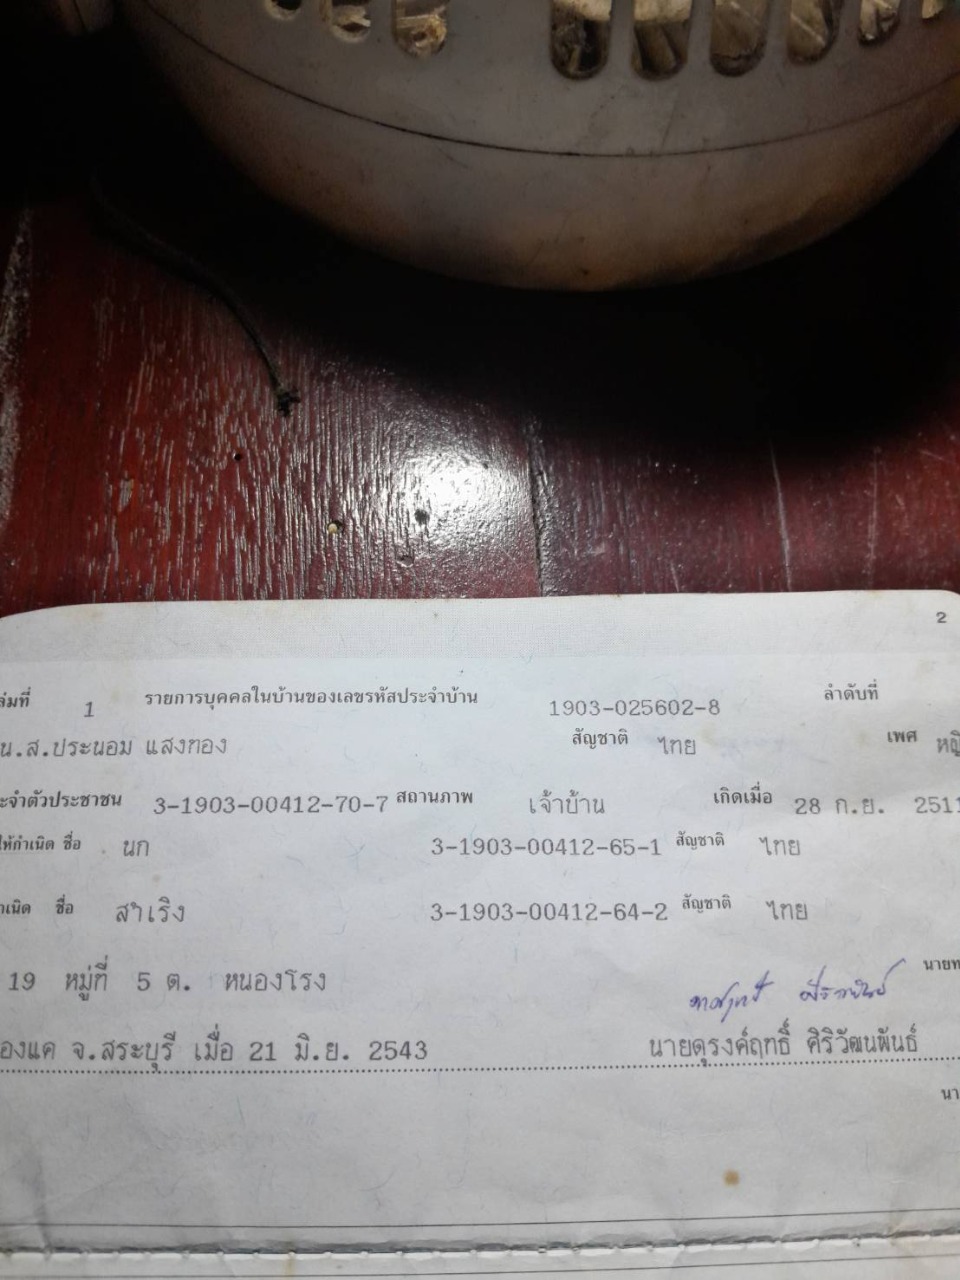 2
ล่มที่ 1 รายการบุคคลในบ้านของเลขรหัสประจำบ้าน 1903-025602-8 ลำดับที่
น.ส.ประนอม แสงทอง สัญชาติ ไทย เพศ หญิ
ะจำตัวประชาชน 3-1903-00412-70-7 สถานภาพ เจ้าบ้าน เกิดเมื่อ 28 ก.ย. 2511
ให้กำเนิด ชื่อ นก 3-1903-00412-65-1 สัญชาติ ไทย
ำเนิด ชื่อ สำเริง 3-1903-00412-64-2 สัญชาติ ไทย
19 หมู่ที่ 5 ต. หนองโรง นายท
องแค จ.สระบุรี เมื่อ 21 มิ.ย. 2543 นายดุรงค์ฤทธิ์ ศิริวัฒนพันธ์
นา